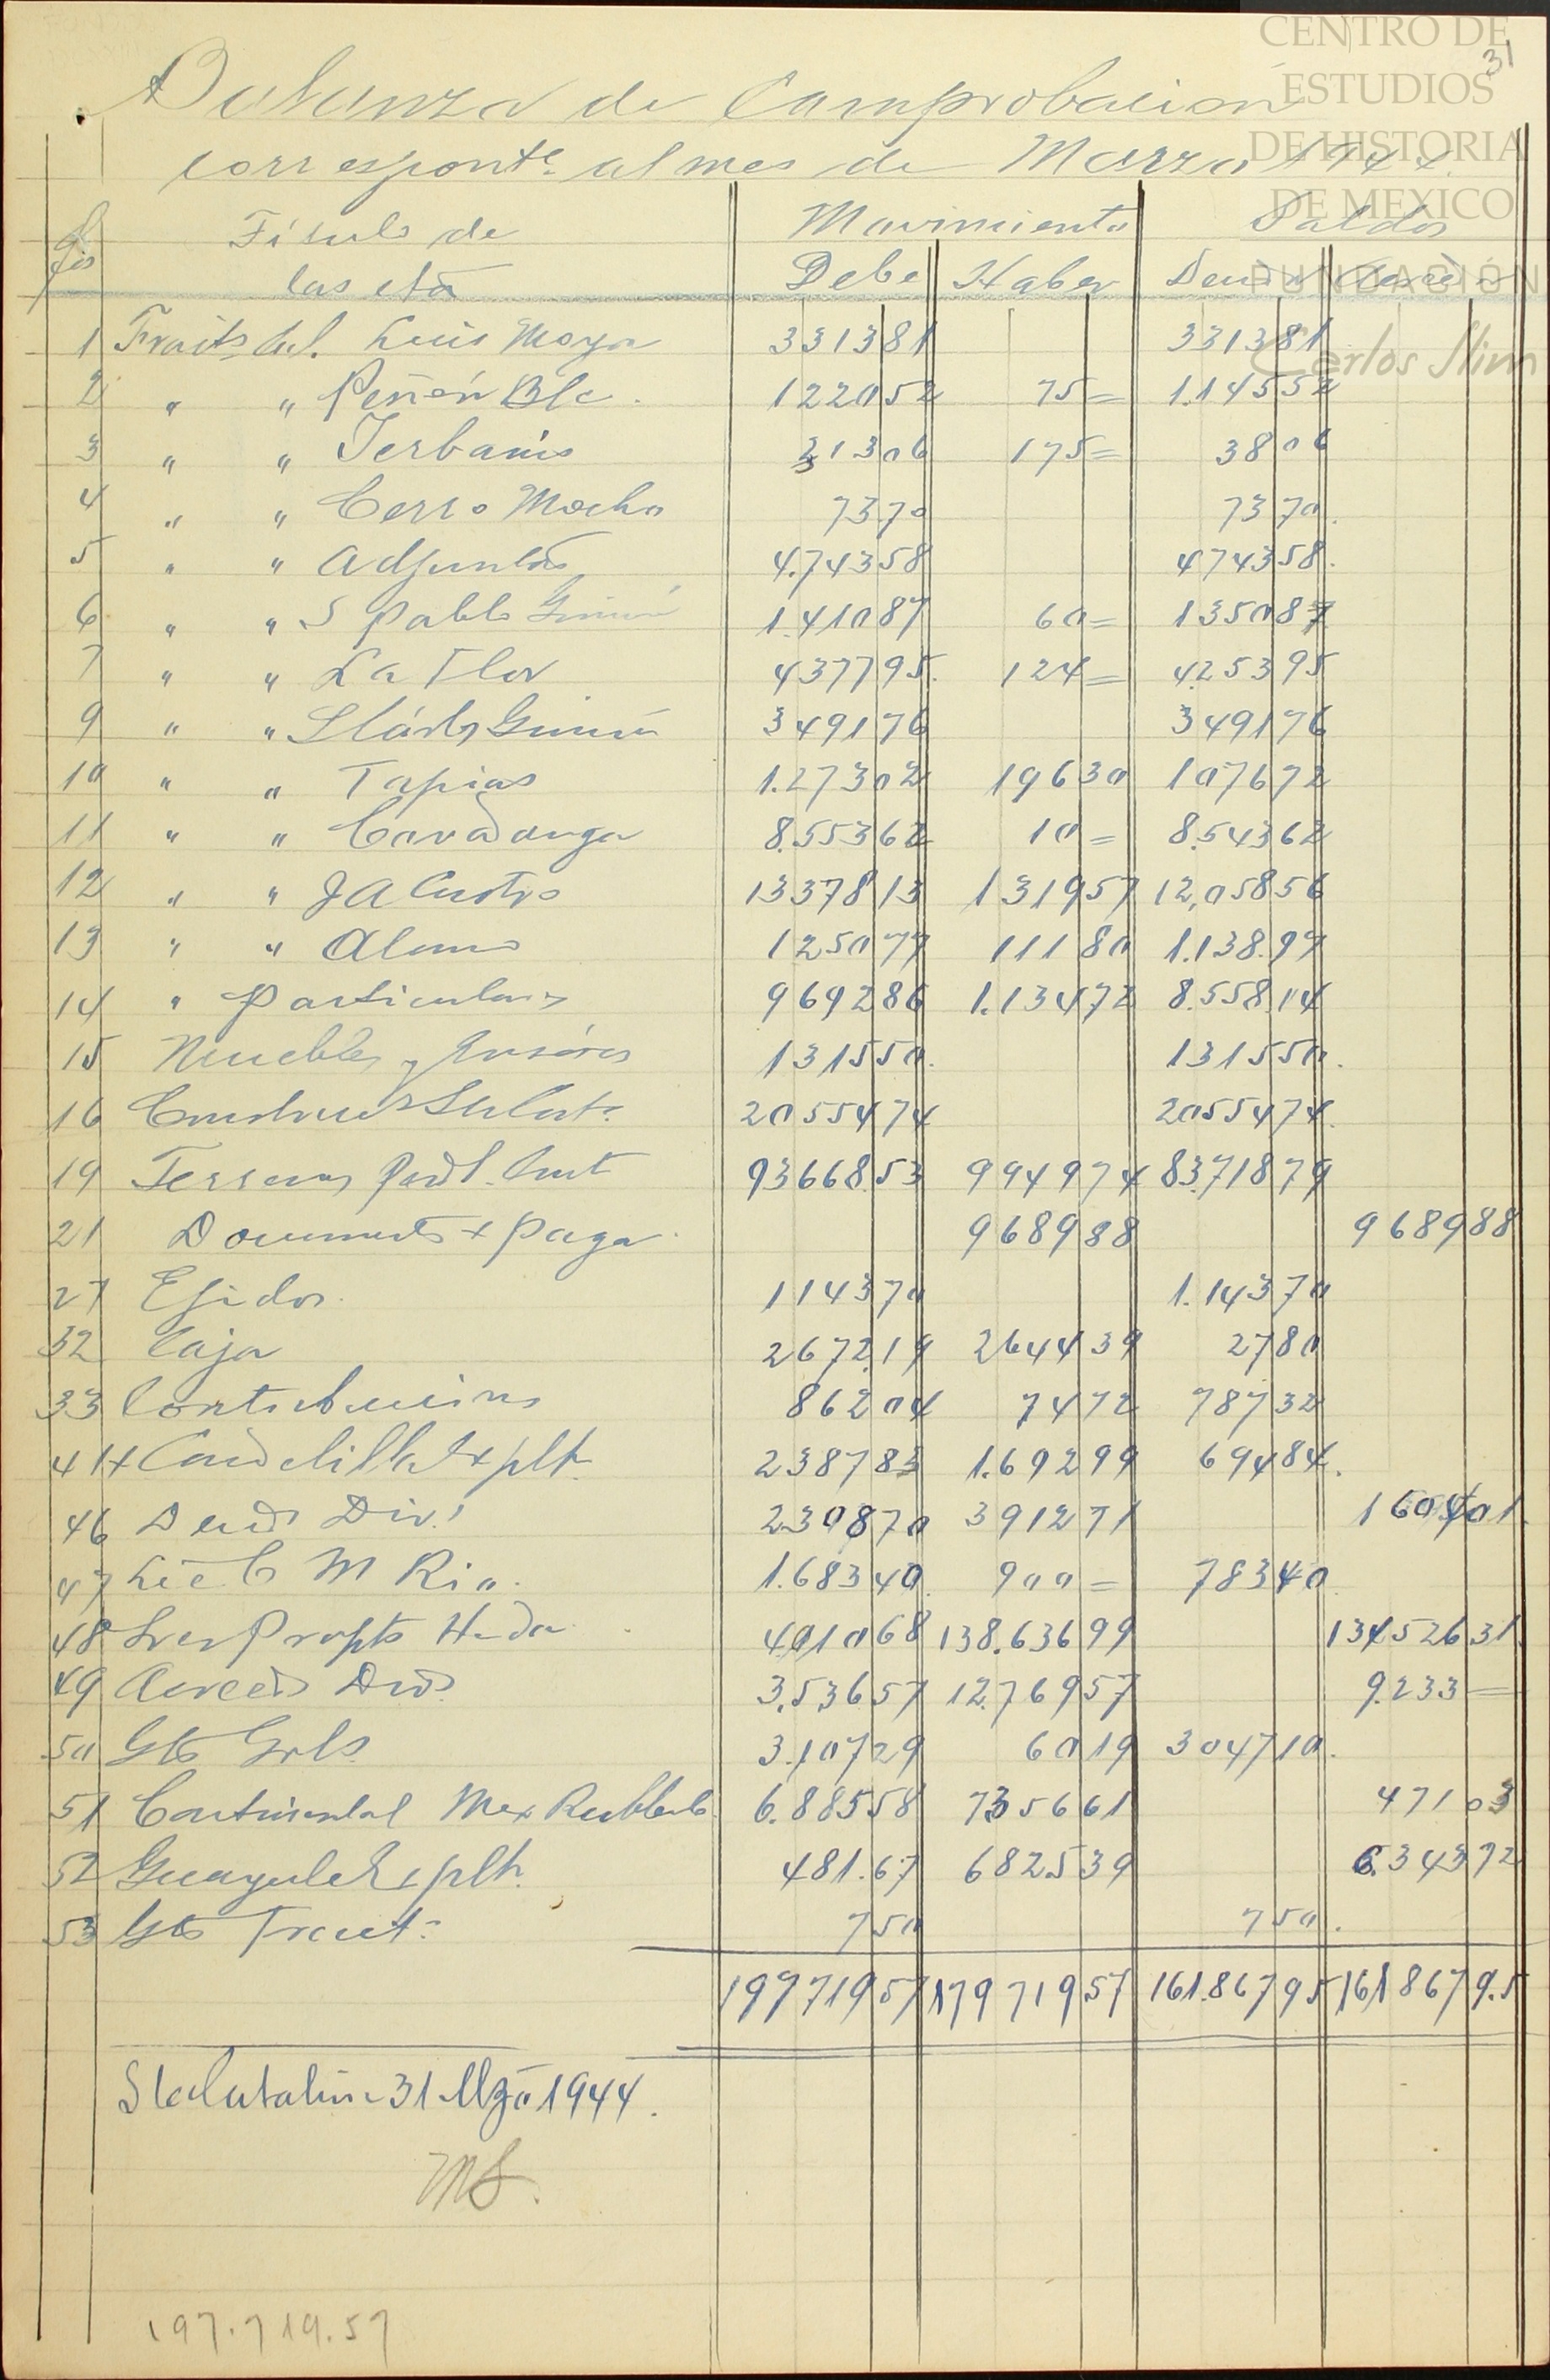 CENTRO DE
ESTUDIOS
DE HISTORIA
DE MEXICO
FUNDACIÓN
Carlos Slim
31
Balanza de Comprobacion
correspont.e al mes de Marzo 1944.
Título de Movimiento Saldos
las ctas Debe Haber Deud. Acreed.
1 Luis Moya 331381 331381
2 " " Peñón Blc. 122052 75= 1.14552
3 " " Yerbanis 21306 175= 3806
4 " " Cerro Mocho 7370 7370
5 " " Adjuntas 4.74358 474358
6 " " S Pablo 1.41087 60= 135087
7 " " La Flor 437795 124= 425395
9 " " 349176 349176
10 " " Tapias 1.27302 19630 107672
11 " " Covadonga 8.55362 10= 8.54362
12 " " J A Castro 1337813 131957 12,05856
13 " " Alamo 125077 11180 1.138.97
14 " Particulares 969286 1.13472 8.55814
15 Muebles y 131550 131550
16 2055474 2055474
19 Terrenos 9366853 994974 8371879
21 Documents x Paga 968988 968988
27 Ejidos 114370 1.14370
32 Caja 267219 264439 2780
33 Contribuciones 86204 7472 78732
41 Candelilla Explt. 238783 1.69299 69484
46 Deuds Divs 230870 391271 160401
47 Lic C M Rio 1.68340 900= 78340
48 Propts Hda 401068 138.63699 13452631
49 Acreeds Divs 3.53657 1276957 9.233=
50 Gts Grls 3.10729 6019 304710
51 Continental Mex Rubber 6.88558 735661 47103
52 Guayule Explt. 481.67 682539 6.34372
53 Gts Tract. 750 750
19771957 19771957 161.86795 16186795
Sta Catalina 31 Mzo 1944.
MS.
197.719.57